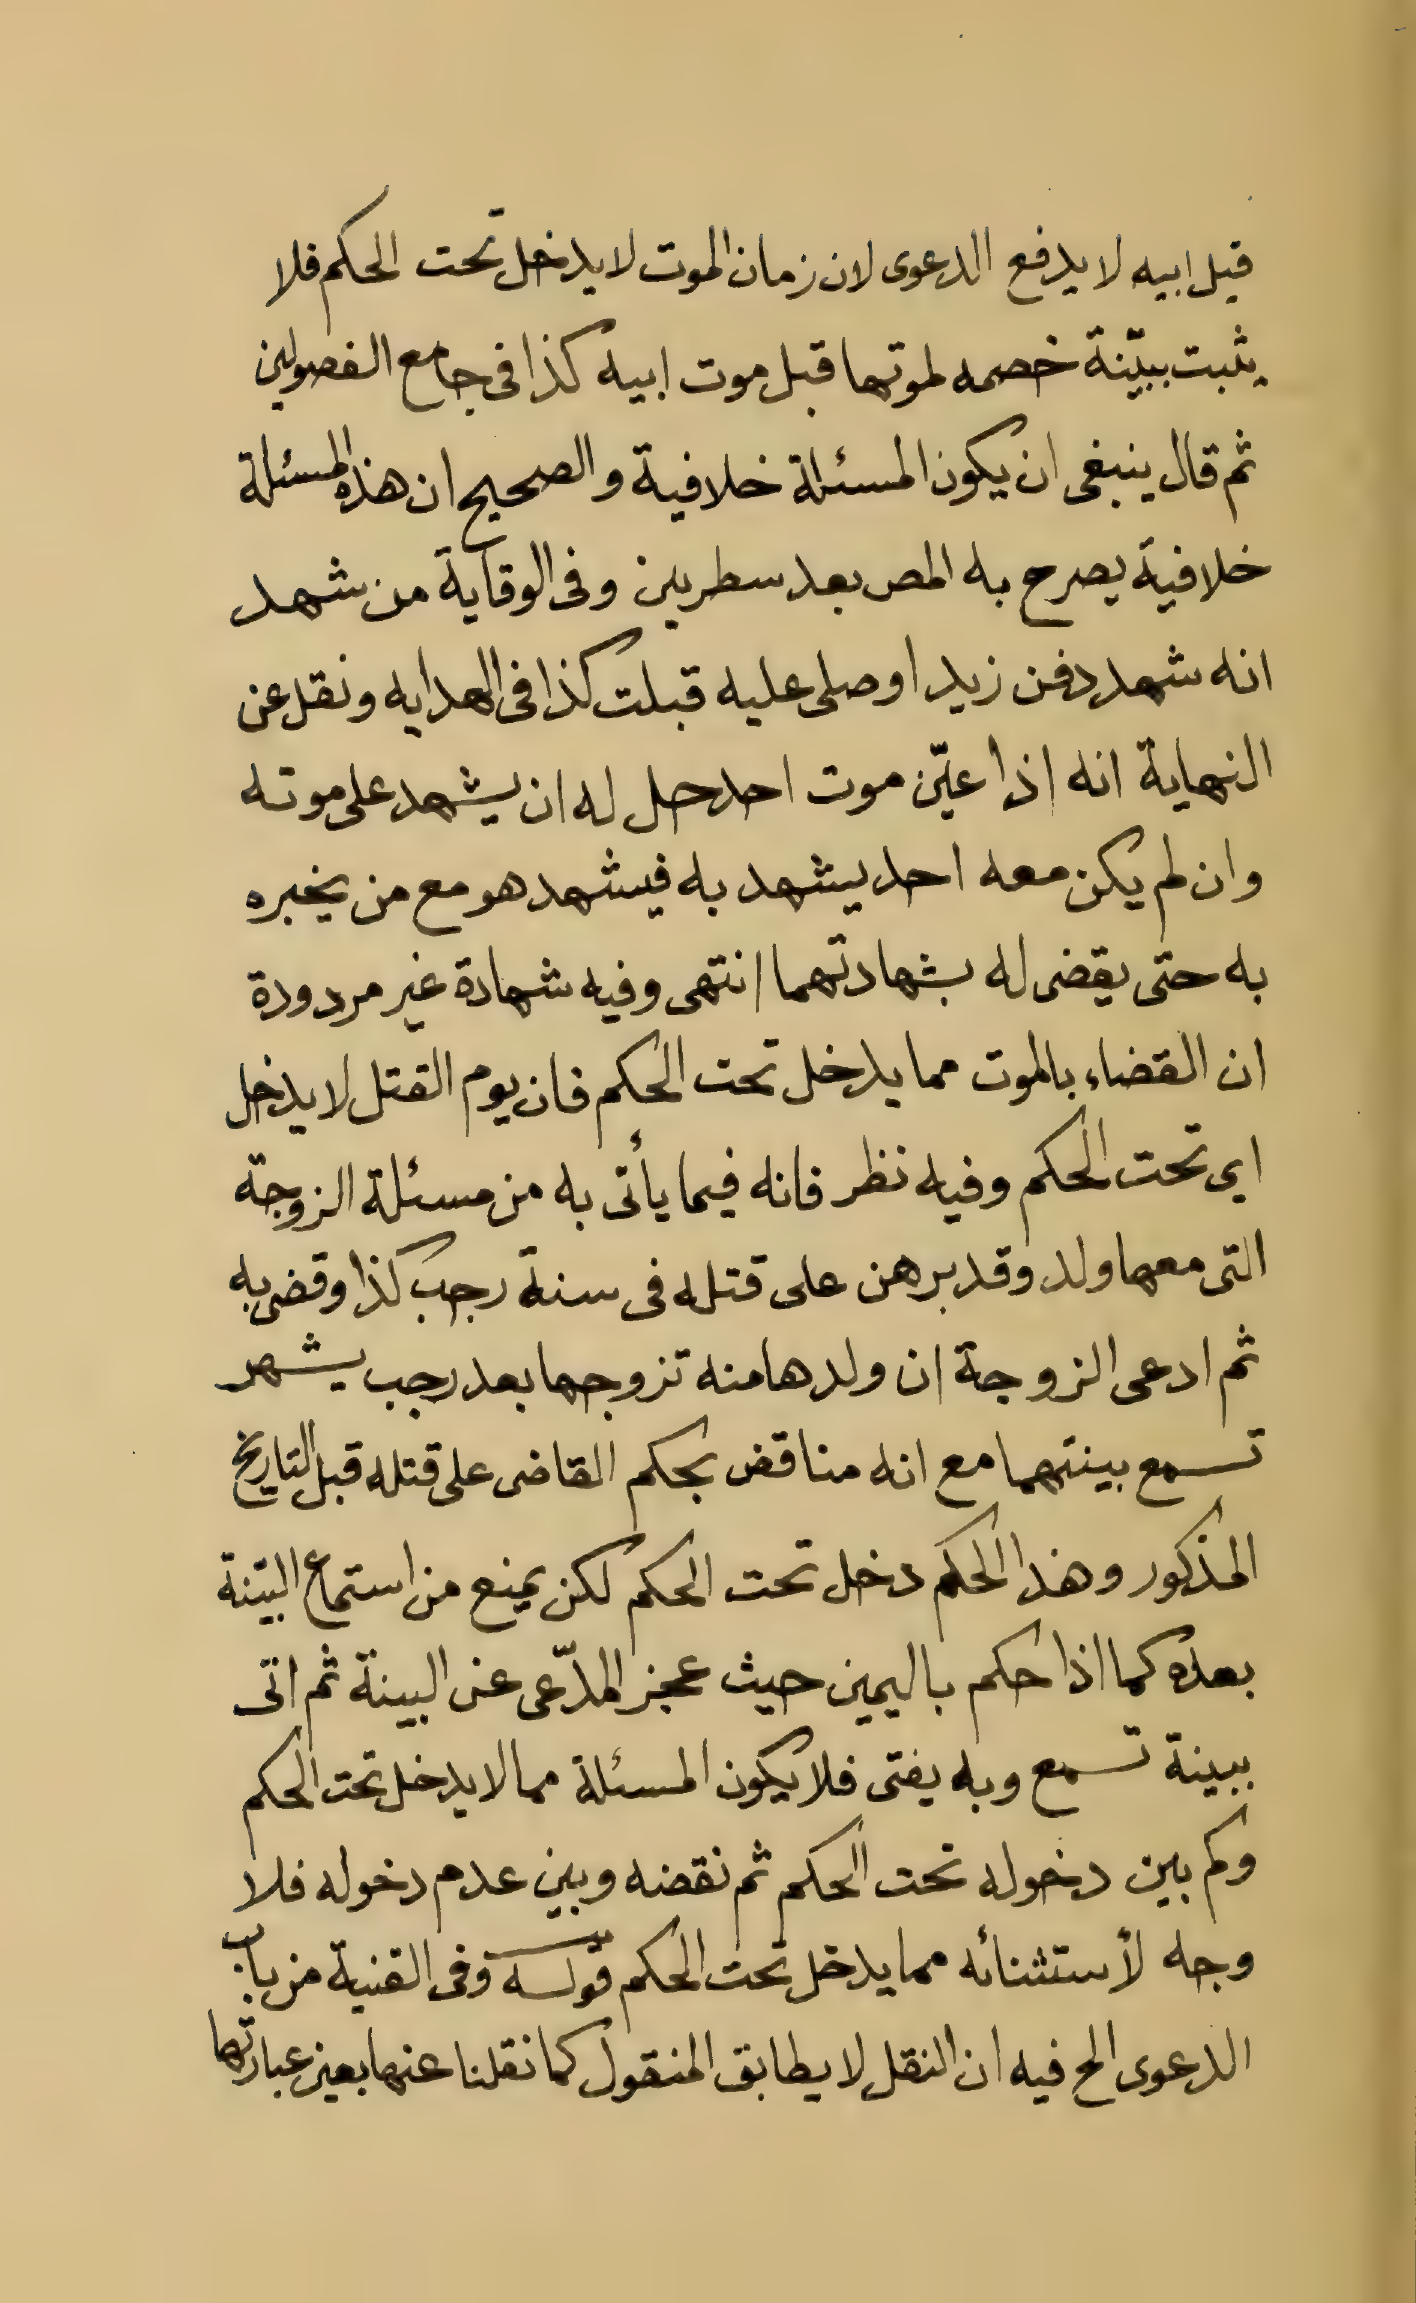 قبل ابيه لا يدفع الدعوى لان زمان الموت لا يدخل تحت الحكم فلا
يثبت ببيّنة خصمه لموتها قبل موت ابيه كذا فى جامع الفصولين
ثم قال ينبغى ان يكون المسئلة خلافية والصحيح ان هذه المسئلة
خلافية يصرح به المص بعد سطرين وفى الوقاية من شهد
انه شهد دفن زيد او صلى عليه قبلت كذا فى الهدايه ونقل عن
النهاية انه اذا عيّن موت احد حل له ان يشهد على موته
وان لم يكن معه احد يشهد به فيشهد هو مع من يخبره
به حتى يقضى له بشهادتهما انتهى وفيه شهادة غير مردودة
ان القضاء بالموت مما يدخل تحت الحكم فان يوم القتل لا يدخل
اي تحت الحكم وفيه نظر فانه فيما يأتى به من مسئلة الزوجة
التى معها ولد وقد برهن على قتله فى سنة رجب كذا وقضى به
ثم ادعى الزوجة ان ولدها منه تزوجها بعد رجب بشهر
تسمع بينتهما مع انه مناقض بحكم القاضى على قتله قبل التاريخ
المذكور وهذا الحكم دخل تحت الحكم لكن يمنع من استماع البيّنة
بعده كما اذا حكم باليمين حيث عجز المدّعى عن البينة ثم اتى
ببينة تسمع وبه يفتى فلا يكون المسئلة مما لا يدخل تحت الحكم
وكم بين دخوله تحت الحكم ثم نقضه وبين عدم دخوله فلا
وجه لأستثنائه مما يدخل تحت الحكم قوله وفى القنية من باب
الدعوى الح فيه ان النقل لا يطابق المنقول كما نقلنا عنها بعين عبارتها